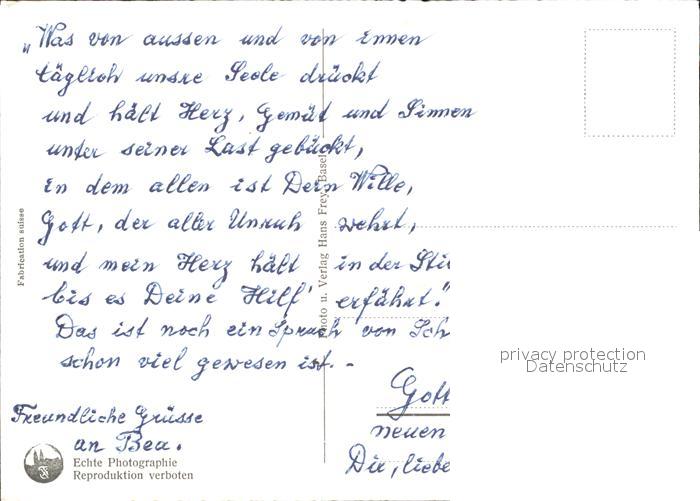 „Was von aussen und von innen
täglich unsre Seele drückt
und hält Herz, Gemüt und Sinnen
unter seiner Last gebückt,
in dem allen ist Dein Wille,
Gott, der aller Unruh wehrt,
und mein Herz hält in der Sti
bis es Deine Hilf' erfährt."
Das ist noch ein Spruch von Sch
schon viel gewesen ist. -
Gott
neuen
Dir, liebe
Freundliche Grüsse
an Bea.
Echte Photographie
Reproduktion verboten
Fabrication suisse
Photo u. Verlag Hans Frey, Basel
privacy protection
Datenschutz